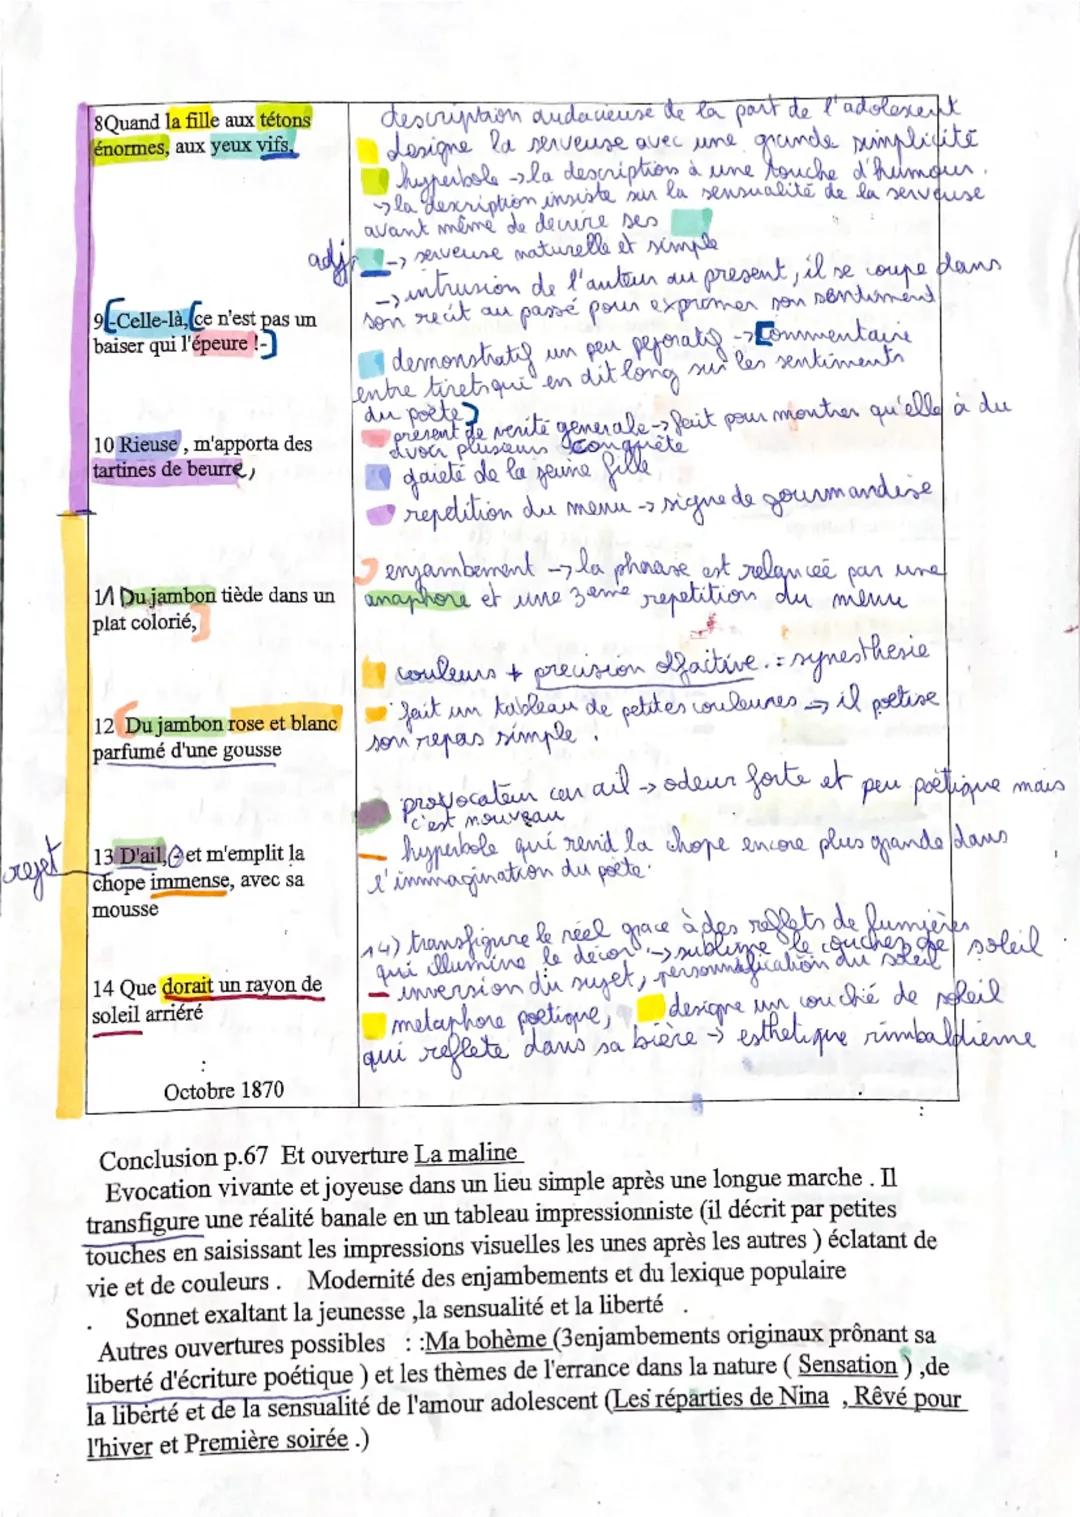 8Quand la fille aux tétons
énormes, aux yeux vifs,
description audacieuse de la part de l'adolescent
designe la serveuse avec une grande simplicité
hyperbole -> la description à une touche d'humour.
-> la description insiste sur la sensualité de la serveuse
avant même de decrire ses
adj -> serveuse naturelle et simple
-> intrusion de l'auteur au present, il se coupe dans
son recit au passé pour exprimer son sentiment
9 -Celle-là, ce n'est pas un
baiser qui l'épeure !-
demonstratif un peu pejoratif -> Commentaire
entre tirets qui en dit long sur les sentiments
du poète
present de verité generale -> fait pour montrer qu'elle à du
avoir plusieurs conquête
10 Rieuse , m'apporta des
tartines de beurre,
gaieté de la jeune fille
repetition du menu -> signe de gourmandise
enjambement -> la phrase est relancée par une
anaphore et une 3eme repetition du menu
11 Du jambon tiède dans un
plat colorié,
couleurs + precision olfactive = synesthesie
fait un tableau de petites couleures -> il poetise
son repas simple.
12 Du jambon rose et blanc
parfumé d'une gousse
provocateur car ail -> odeur forte et peu poètique mais
c'est nouveau
rejet
13 D'ail, - et m'emplit la
chope immense, avec sa
mousse
hyperbole qui rend la chope encore plus grande dans
l'immagination du poète.
14) transfigure le réel grace à des reflets de lumières
qui illumine le décor -> sublime le coucher de soleil
- inversion du sujet, personnification du soleil
14 Que dorait un rayon de
soleil arriéré
metaphore poetique, designe un couché de soleil
qui reflete dans sa bière -> esthetique rimbaldienne
:
Octobre 1870
Conclusion p.67 Et ouverture La maline
Evocation vivante et joyeuse dans un lieu simple après une longue marche . Il
transfigure une réalité banale en un tableau impressionniste (il décrit par petites
touches en saisissant les impressions visuelles les unes après les autres ) éclatant de
vie et de couleurs . Modernité des enjambements et du lexique populaire
. Sonnet exaltant la jeunesse ,la sensualité et la liberté .
Autres ouvertures possibles : :Ma bohème (3enjambements originaux prônant sa
liberté d'écriture poétique ) et les thèmes de l'errance dans la nature ( Sensation ) ,de
la liberté et de la sensualité de l'amour adolescent (Les réparties de Nina , Rêvé pour
l'hiver et Première soirée .)